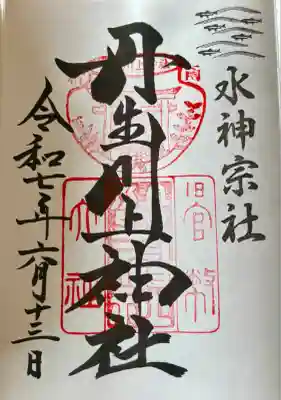 水神宗社
丹生川上神社
令和七年六月十三日